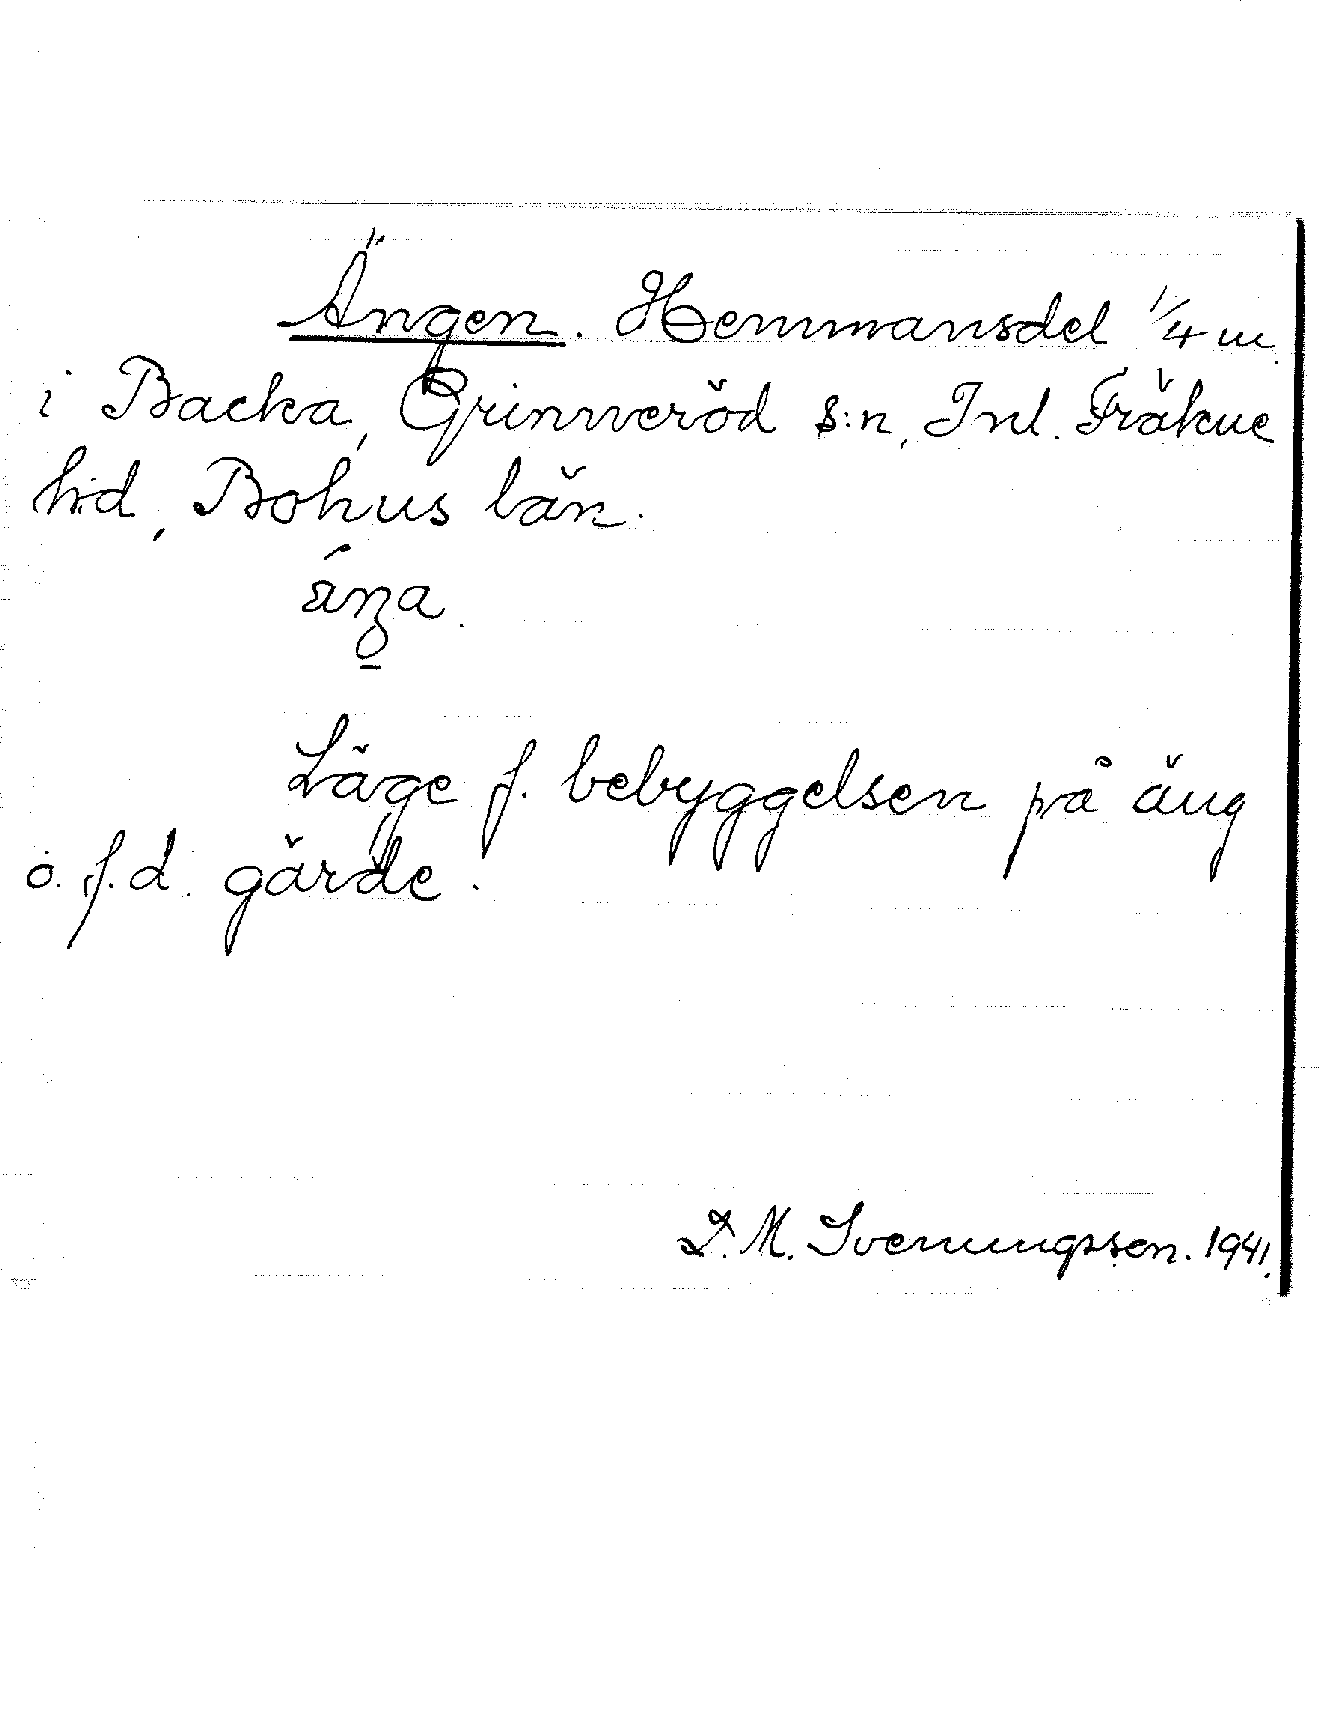 Ängen. Hemmansdel 1/4 m.
i Backa, Grinneröd s:n, Inl. Fräkne
hd, Bohus län.
Läge f. bebyggelsen på äng
o. f.d. gärde.
D. M. Svenungsson. 1941.